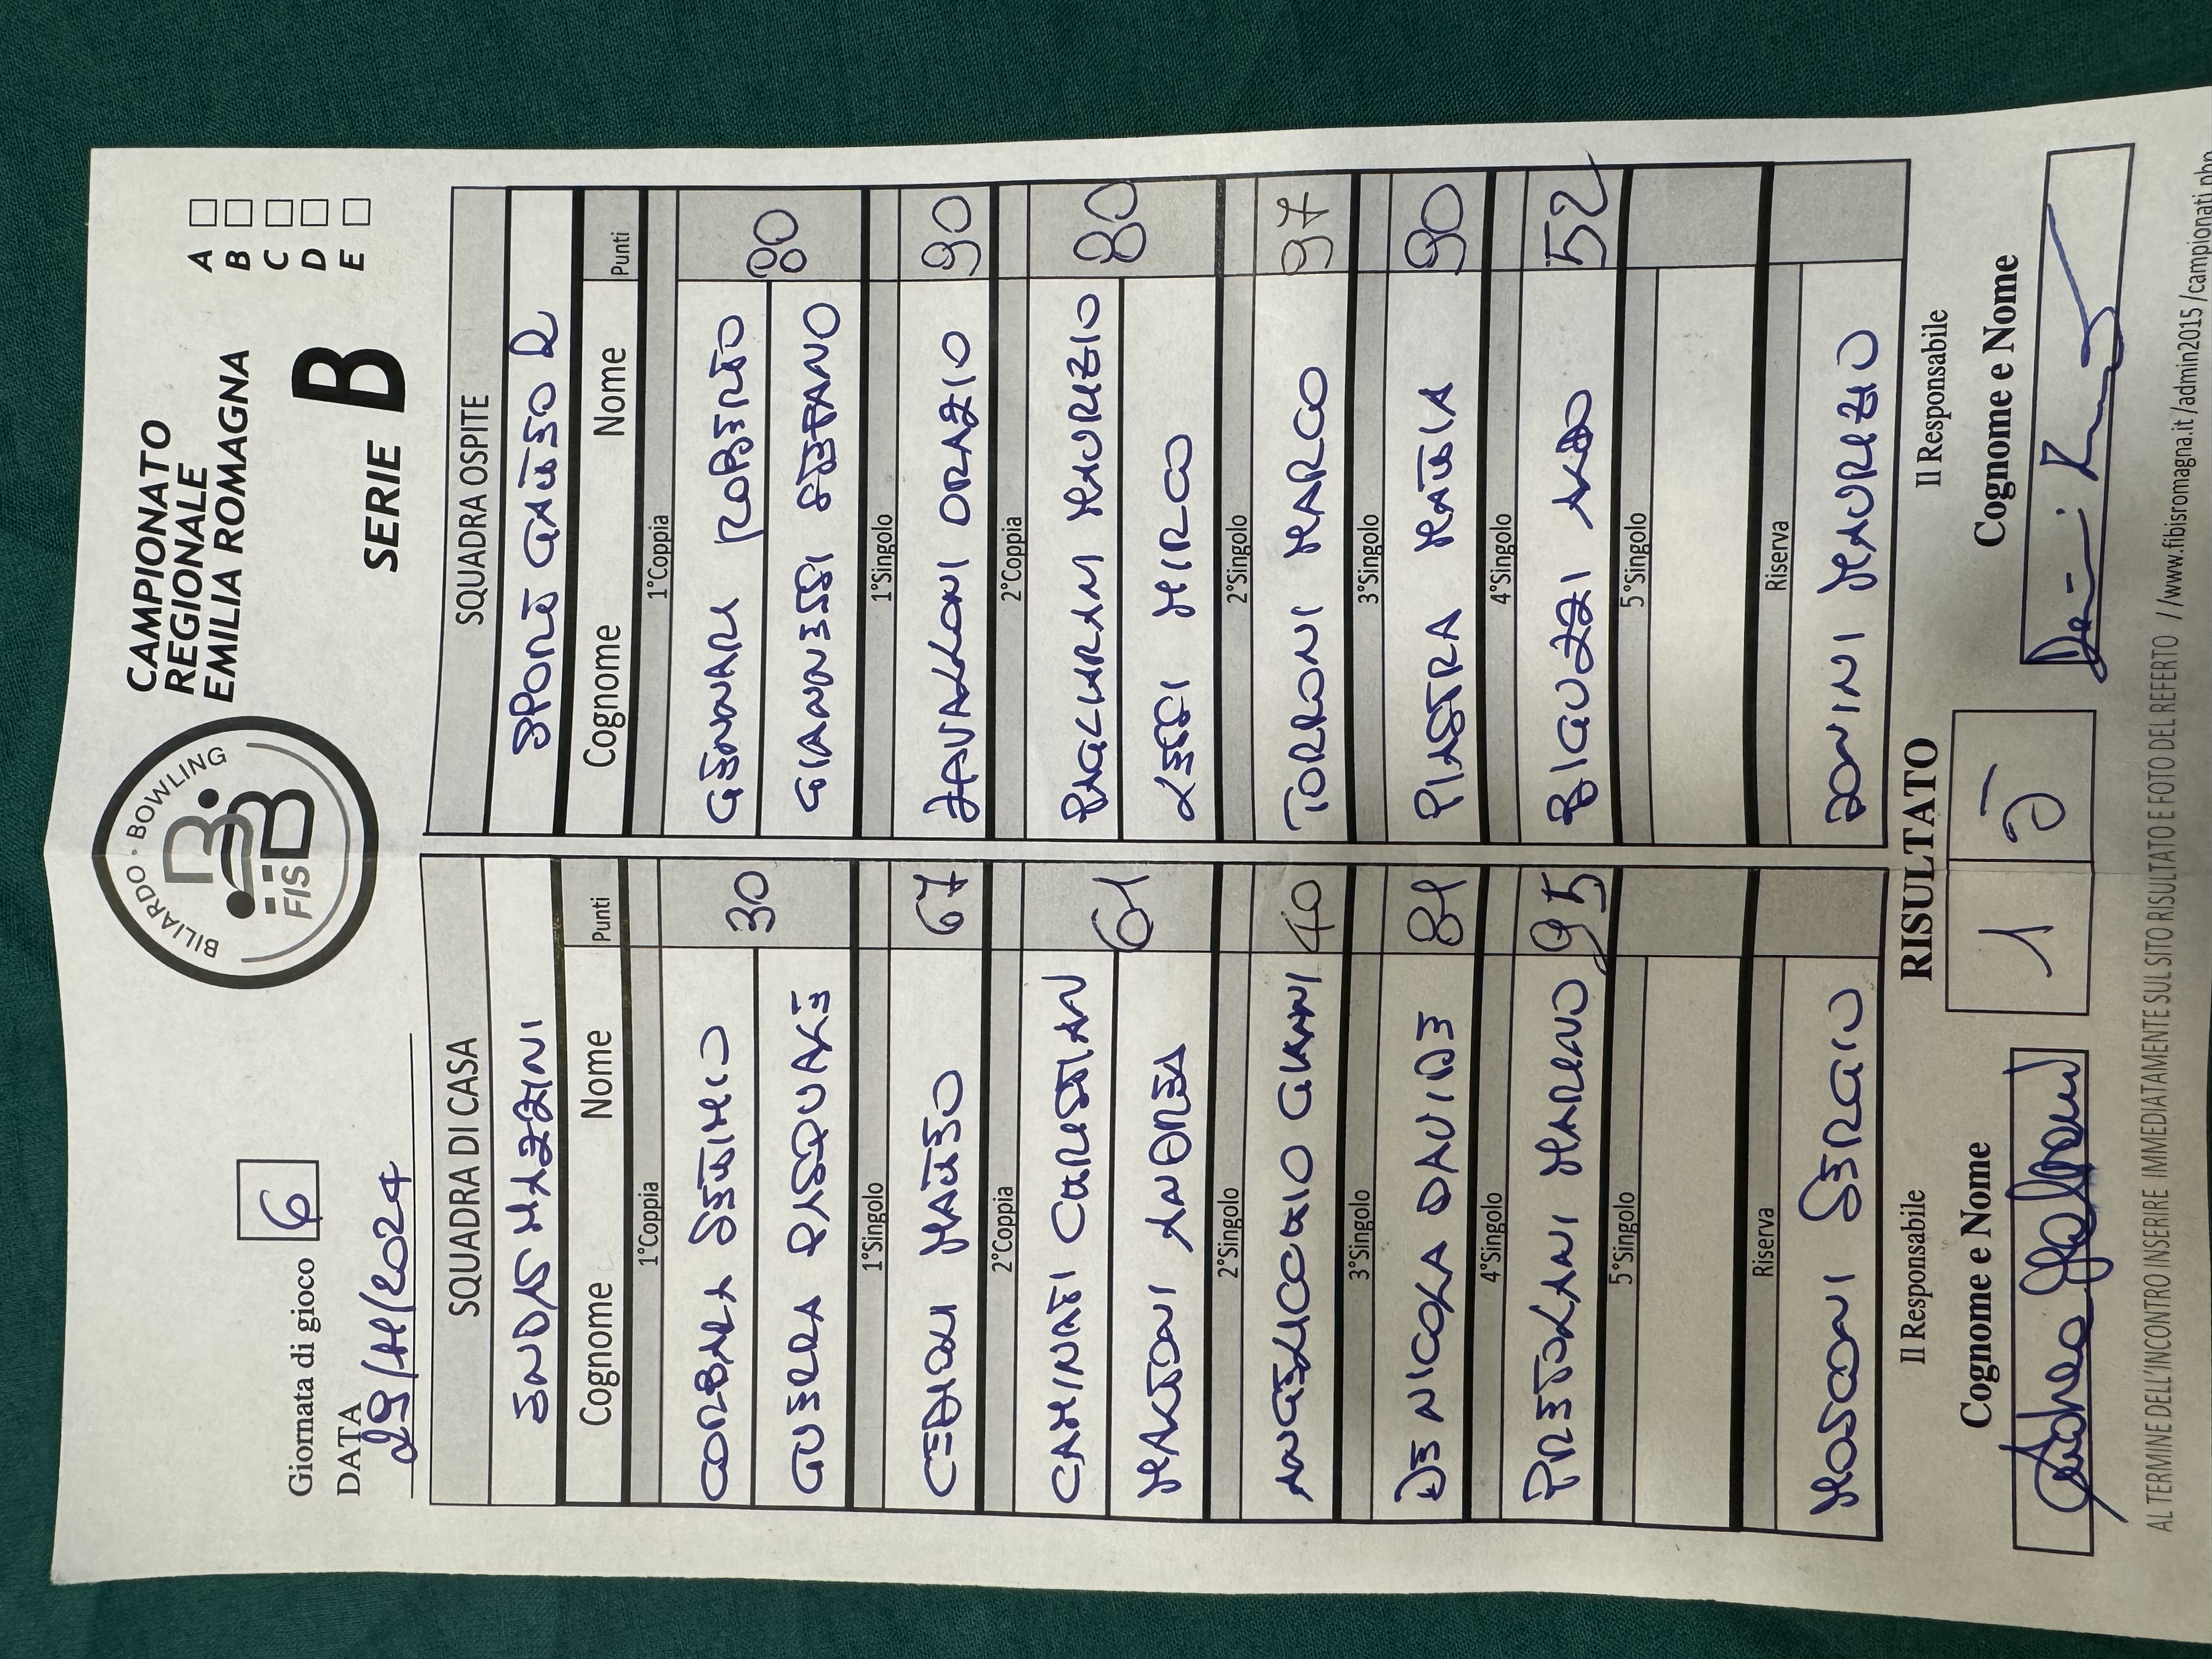 Giornata di gioco 6
DATA
29/11/2024
BILIARDO · BOWLING
FISBB
CAMPIONATO
REGIONALE
EMILIA ROMAGNA
SERIE B
A
B
C
D
E
SQUADRA DI CASA
ENDAS MAZZINI
Cognome Nome Punti
1°Coppia
CORBARA SETTIMIO
30
GUERRA PASQUALE
1°Singolo
CEDIOLI MATTEO 67
2°Coppia
CAMINATI CHRISTIAN
61
MARTONI ANDREA
2°Singolo
ANGELICCHIO GIANNI 40
3°Singolo
DE NICOLA DAVIDE 81
4°Singolo
PRETOLANI MARINO 95
5°Singolo
Riserva
MOSCONI SERGIO
SQUADRA OSPITE
SPORT CAFFE R
Cognome Nome Punti
1°Coppia
GENNARI ROBERTO
80
GIANNESSI STEFANO
1°Singolo
ZAVALLONI ORAZIO 90
2°Coppia
PAGLIARANI MAURIZIO
80
LESSI MIRCO
2°Singolo
TORRONI MARCO 97
3°Singolo
PIASTRA MATTIA 90
4°Singolo
BIGUZZI ALDO 52
5°Singolo
Riserva
DONINI MAURIZIO
Il Responsabile
RISULTATO
Il Responsabile
Cognome e Nome
1 5
Cognome e Nome
AL TERMINE DELL'INCONTRO INSERIRE IMMEDIATAMENTE SUL SITO RISULTATO E FOTO DEL REFERTO //www.fibisromagna.it/admin2015/campionati.php